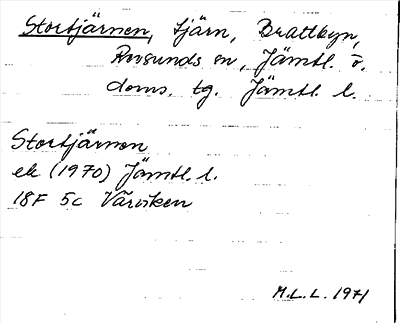 Stortjärnen, tjärn, Brattbyn,
Revsunds sn, Jämtl. ö.
doms. tg. Jämtl. l.
Stortjärnen
ek (1970) Jämtl. l.
18F 5c Várviken
M.L.L. 1971